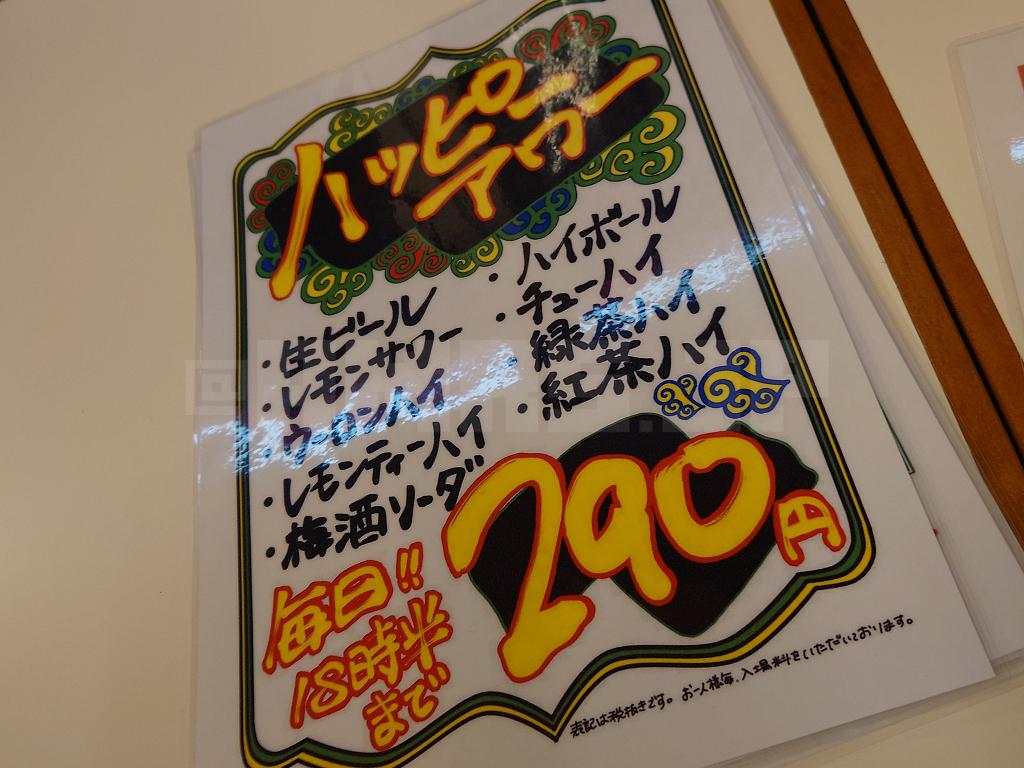 ハッピー
アワー
・生ビール
・レモンサワー
・ウーロンハイ
・レモンティーハイ
・梅酒ソーダ
・ハイボール
・チューハイ
・緑茶ハイ
・紅茶ハイ
290円
毎日!!
18時半
まで
表記は税抜きです。お一人様毎、入場料をいただいております。